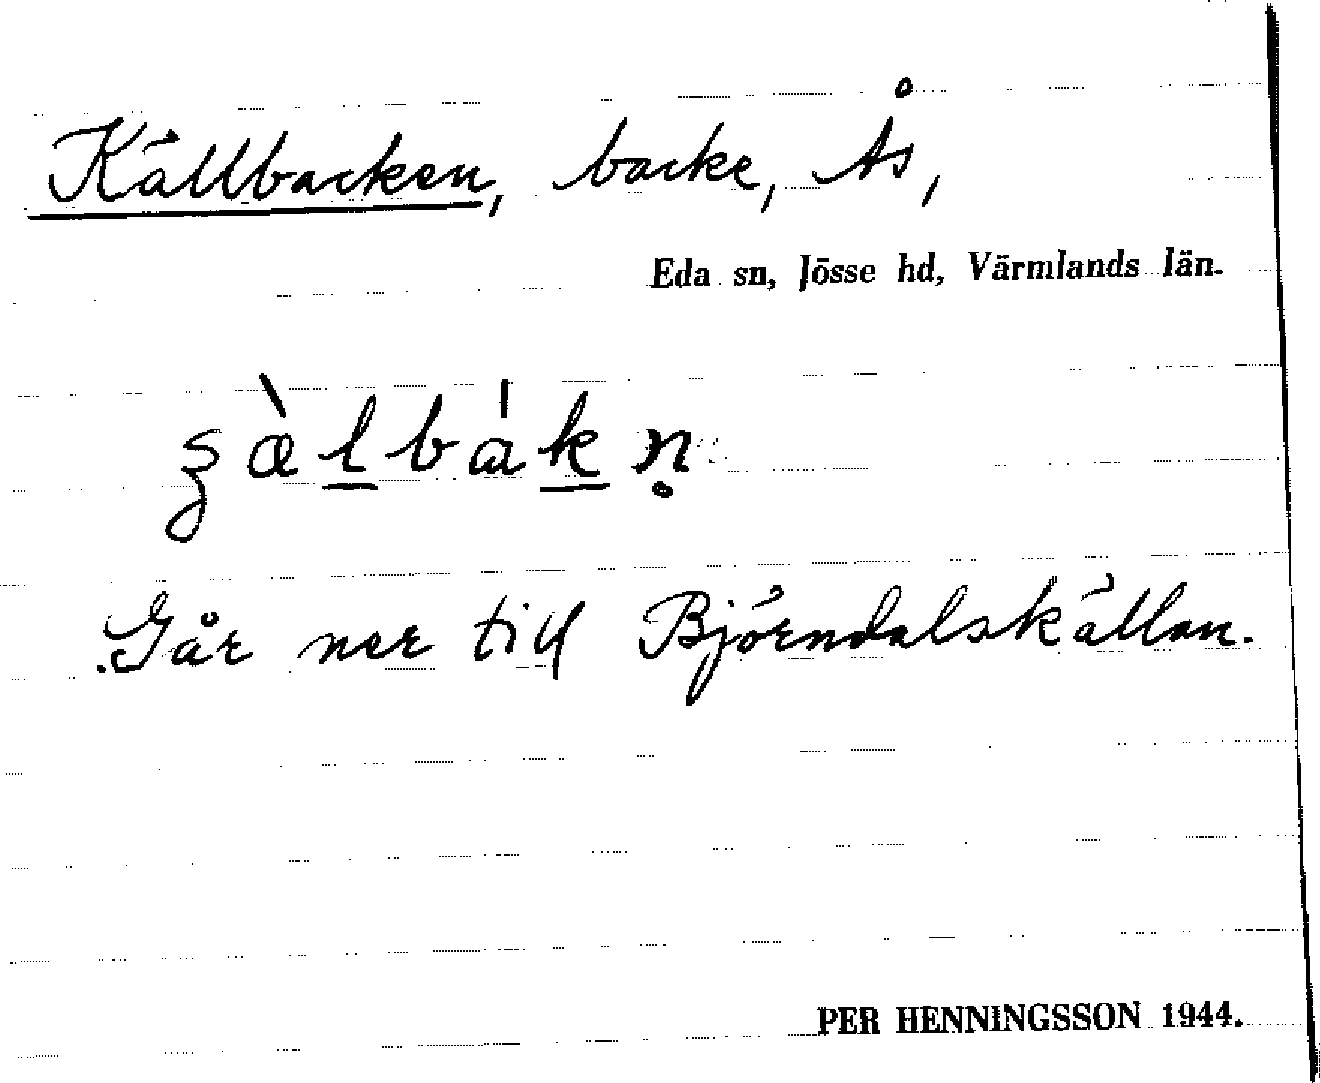 Källbacken, backe, Ås,
Eda sn, Jösse hd, Värmlands län.
Går ner till Björndalskällan.
PER HENNINGSSON 1944.